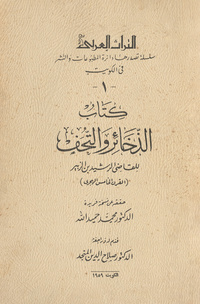 التراث العربي
سلسلة تصدرها دائرة المطبوعات والنشر
في الكويت
- ١ -
كتاب
الذخائر والتحف
للقاضي الرشيد بن الزبير
(القرن الخامس الهجري)
حققه عن نسخة فريدة
الدكتور محمد حميد الله
قدم له وراجعه
الدكتور صلاح الدين المنجد
الكويت ١٩٥٩